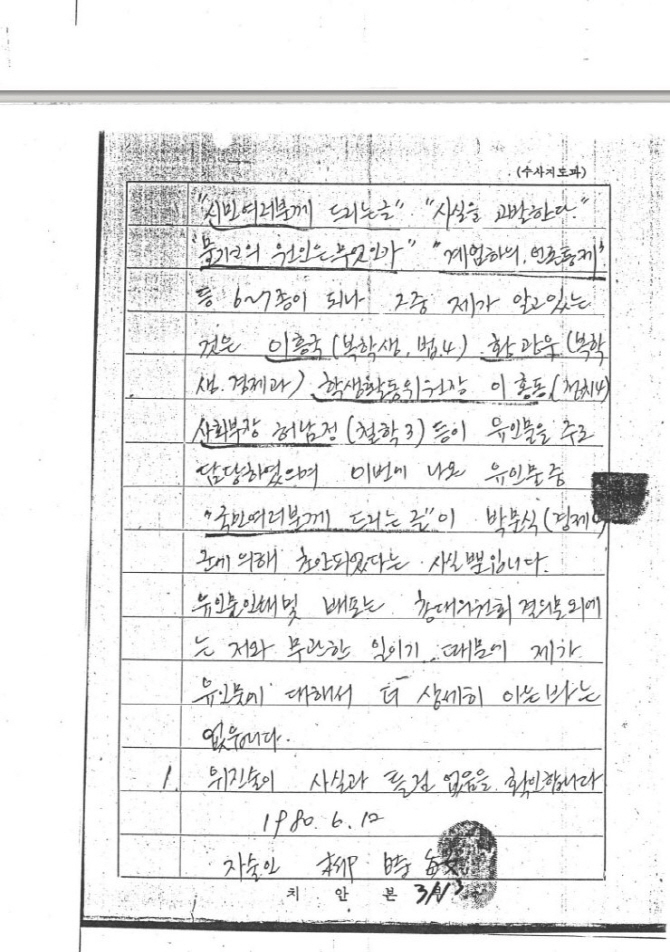 (수사지도과)
"시민여러분께 드리는글" "사실을 고발한다."
원인은무엇인가" "계엄하의, 언론통제"
등 6~7종이 되나 그중 제가 알고있는
것은 이흥국(복학생, 법4) 황광우(복학
생. 경제과) 학생활동위원장 이홍동(정치4)
사회부장 허남정(철학3) 등이 유인물을 주로
담당하였으며 이번에 나온 유인물중
"국민여러분께 드리는 글"이 박문식(경제4)
군에 의해 초안되었다는 사실뿐입니다.
유인물인쇄및 배포는 총대의원회 결의문외에
는 저와 무관한 일이기 때문에 제가
유인물에 대해서 더 상세히 아는 바는
없읍니다.
1. 위진술이 사실과 틀림 없음을 확인합니다
1980. 6. 12
자술인
치 안 본